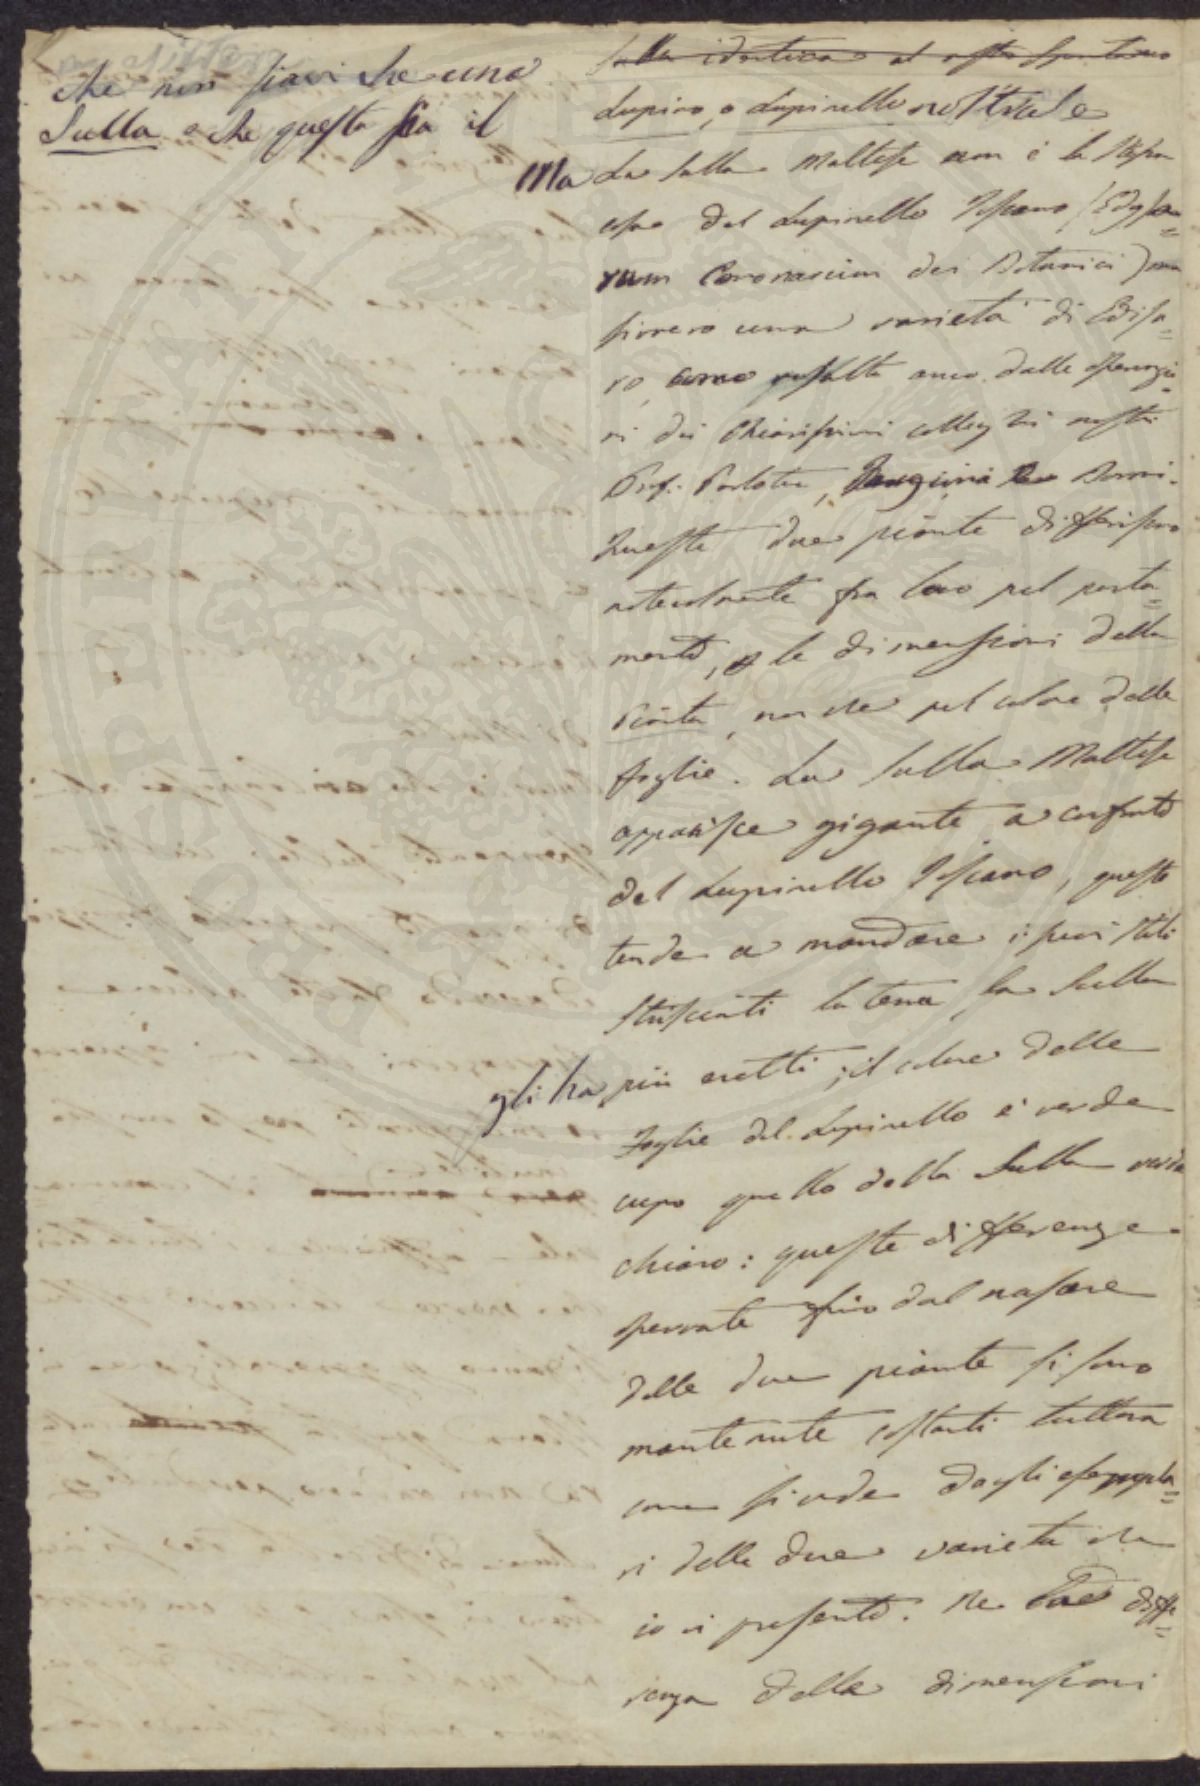 che non siavi che una
Sulla e che questa sia il
Sulla identica al nostro spontaneo
Lupino, o Lupinello nostrale
Ma La Sulla Maltese non è la stessa
cosa del Lupinello Toscano (Edysa=
rum Coronarium dei Botanici) ma
sivvero una varietà di Edisa=
ro, come resulta anco dalle sperenzie=
ni dei Chiarissimi colleghi nostri
Prof. Parlatore,
Queste due piante differiscono
notevolmente fra loro pel porta=
mento, e le dimensioni della
Pianta, non che pel colore delle
foglie. La Sulla Maltese
apparisce gigante a confronto
del Lupinello Toscano, questo
tende a mandare i suoi steli
striscianti la terra, la Sulla
gli ha più eretti; il colore delle
Foglie del Lupinello è verde
cupo quello della Sulla verde
chiaro: queste differenze
osservate fino dal nascere
delle due piante si sono
mantenute costanti tuttora
come si vede dagli esempla=
ri delle due varietà che
io vi presento. Ne diffe=
renza delle dimensioni
PROSPERITATI